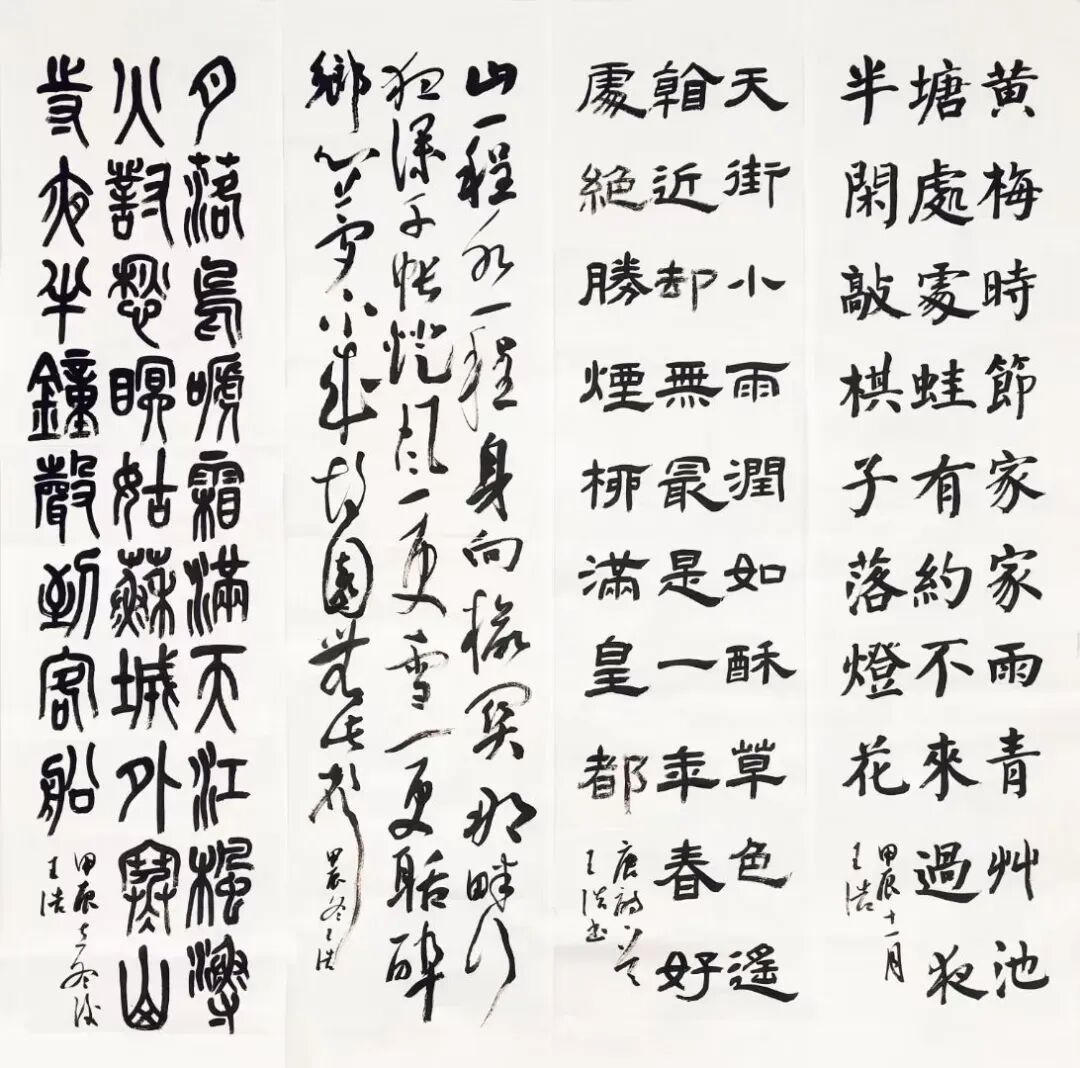 黄梅時節家家雨青艸池
塘處處蛙有約不來過夜
半閑敲棋子落燈花
甲辰十一月
王浩
天街小雨潤如酥草色遙
看近却無最是一年春好
處絕勝煙柳滿皇都
唐詩一首
王浩書
山一程水一程身向榆關那畔行
夜深千帳燈風一更雪一更聒碎
鄉心夢不成故園無此聲
甲辰冬王浩
月落烏啼霜滿天江楓漁
火對愁眠姑蘇城外寒山
寺夜半鐘聲到客船
甲辰冬
王浩